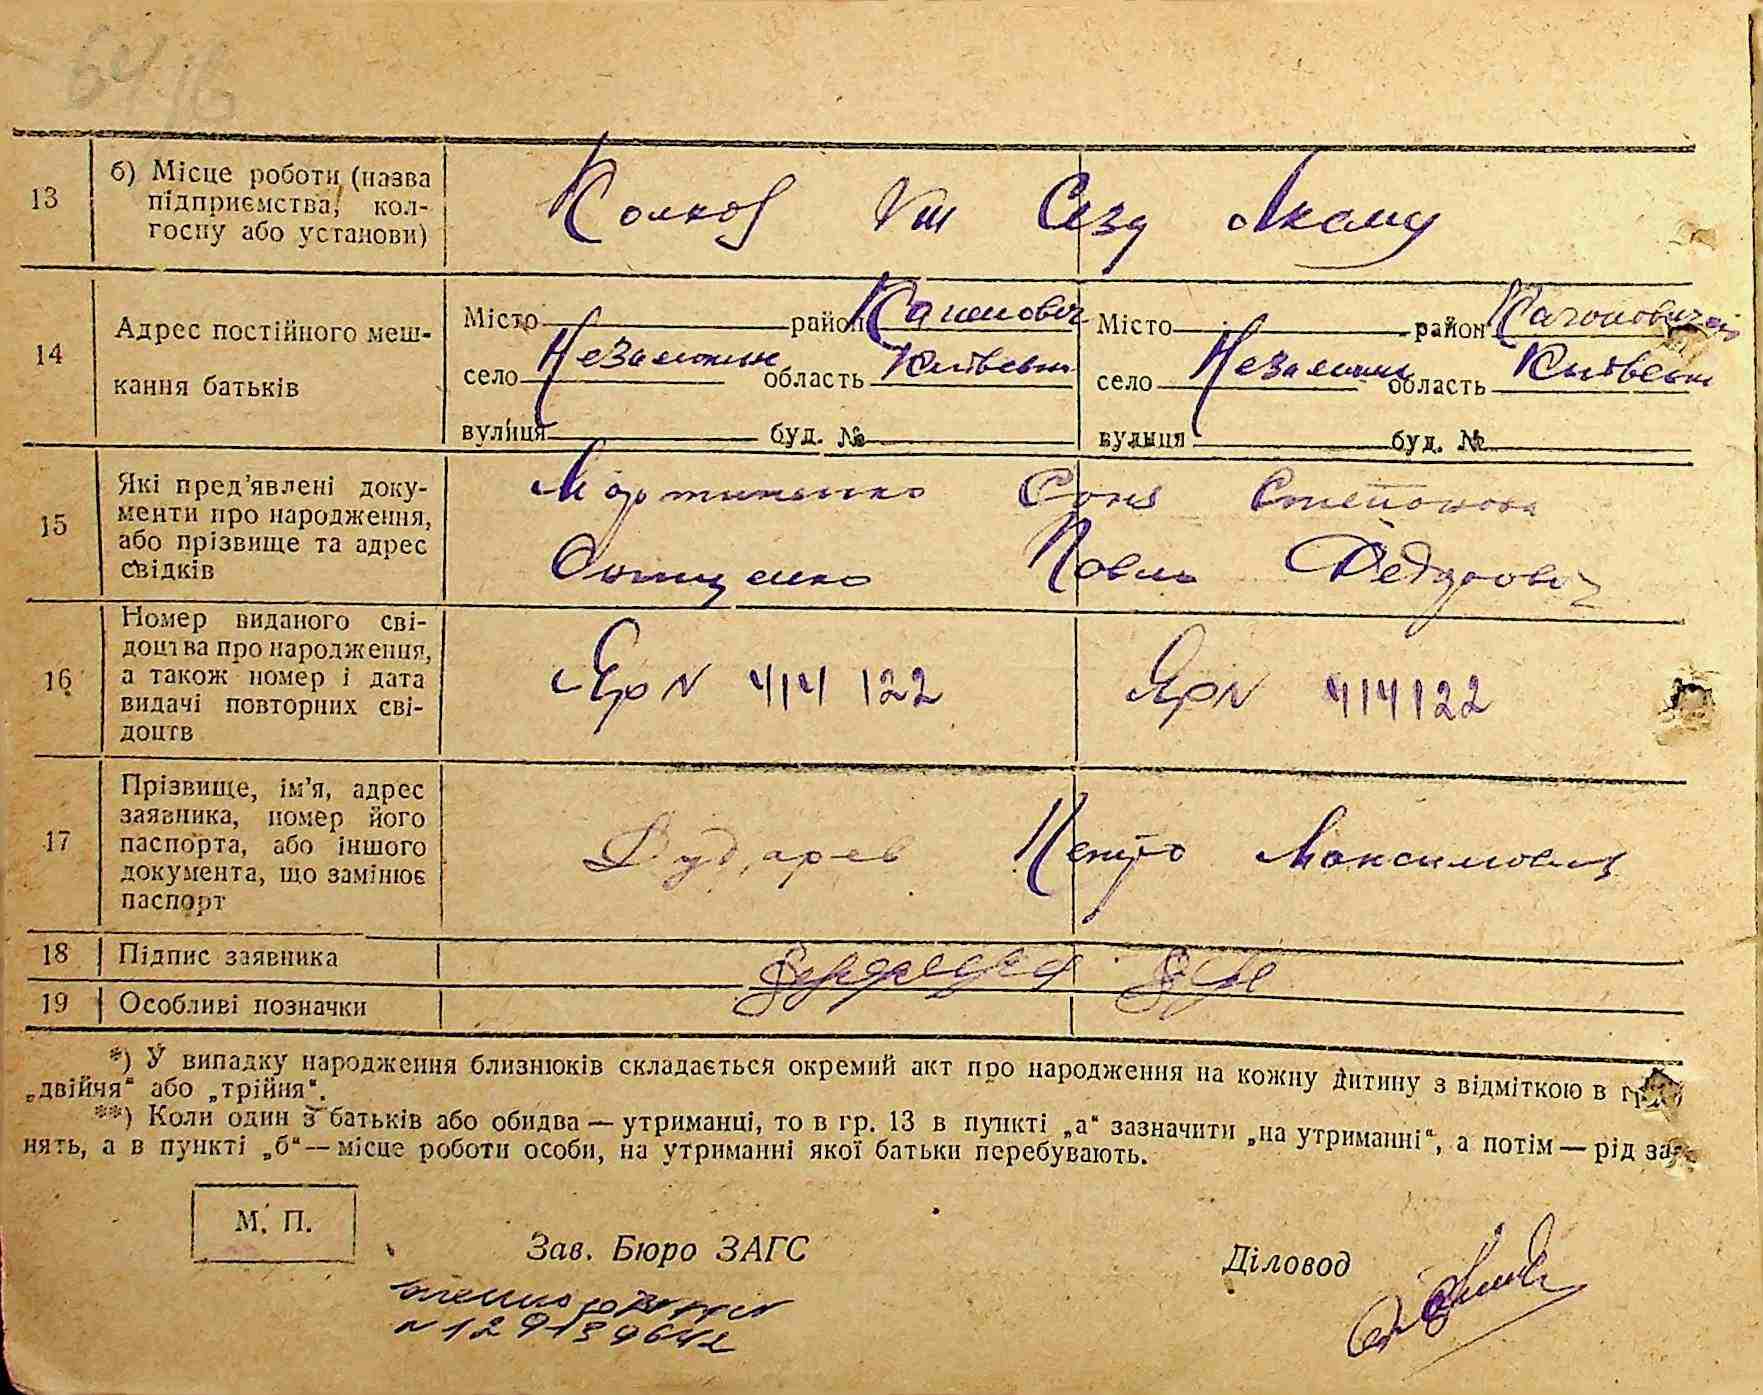 13 б) Місце роботи (назва
підприємства, кол-
госпу або установи)
14 Адрес постійного меш-
кання батьків
Місто район
село область
вулиця буд. №
Місто район
село область
вулиця буд. №
15 Які пред'явлені доку-
менти про народження,
або прізвище та адрес
свідків
Мартиненко Соня Степанова
Онищенко Павло Федорович
16 Номер виданого сві-
доцтва про народження,
а також номер і дата
видачі повторних сві-
доцтв
ЯР N 414122 ЯР N 414122
17 Прізвище, ім'я, адрес
заявника, номер його
паспорта, або іншого
документа, що замінює
паспорт
Петро Максимович
18 Підпис заявника
19 Особливі позначки
*) У випадку народження близнюків складається окремий акт про народження на кожну дитину з відміткою в
„двійчя“ або „трійня“.
**) Коли один з батьків або обидва — утриманці, то в гр. 13 в пункті „а“ зазначити „на утриманні“, а потім — рід за-
нять, а в пункті „б“ — місце роботи особи, на утриманні якої батьки перебувають.
М. П.
Зав. Бюро ЗАГС
Діловод